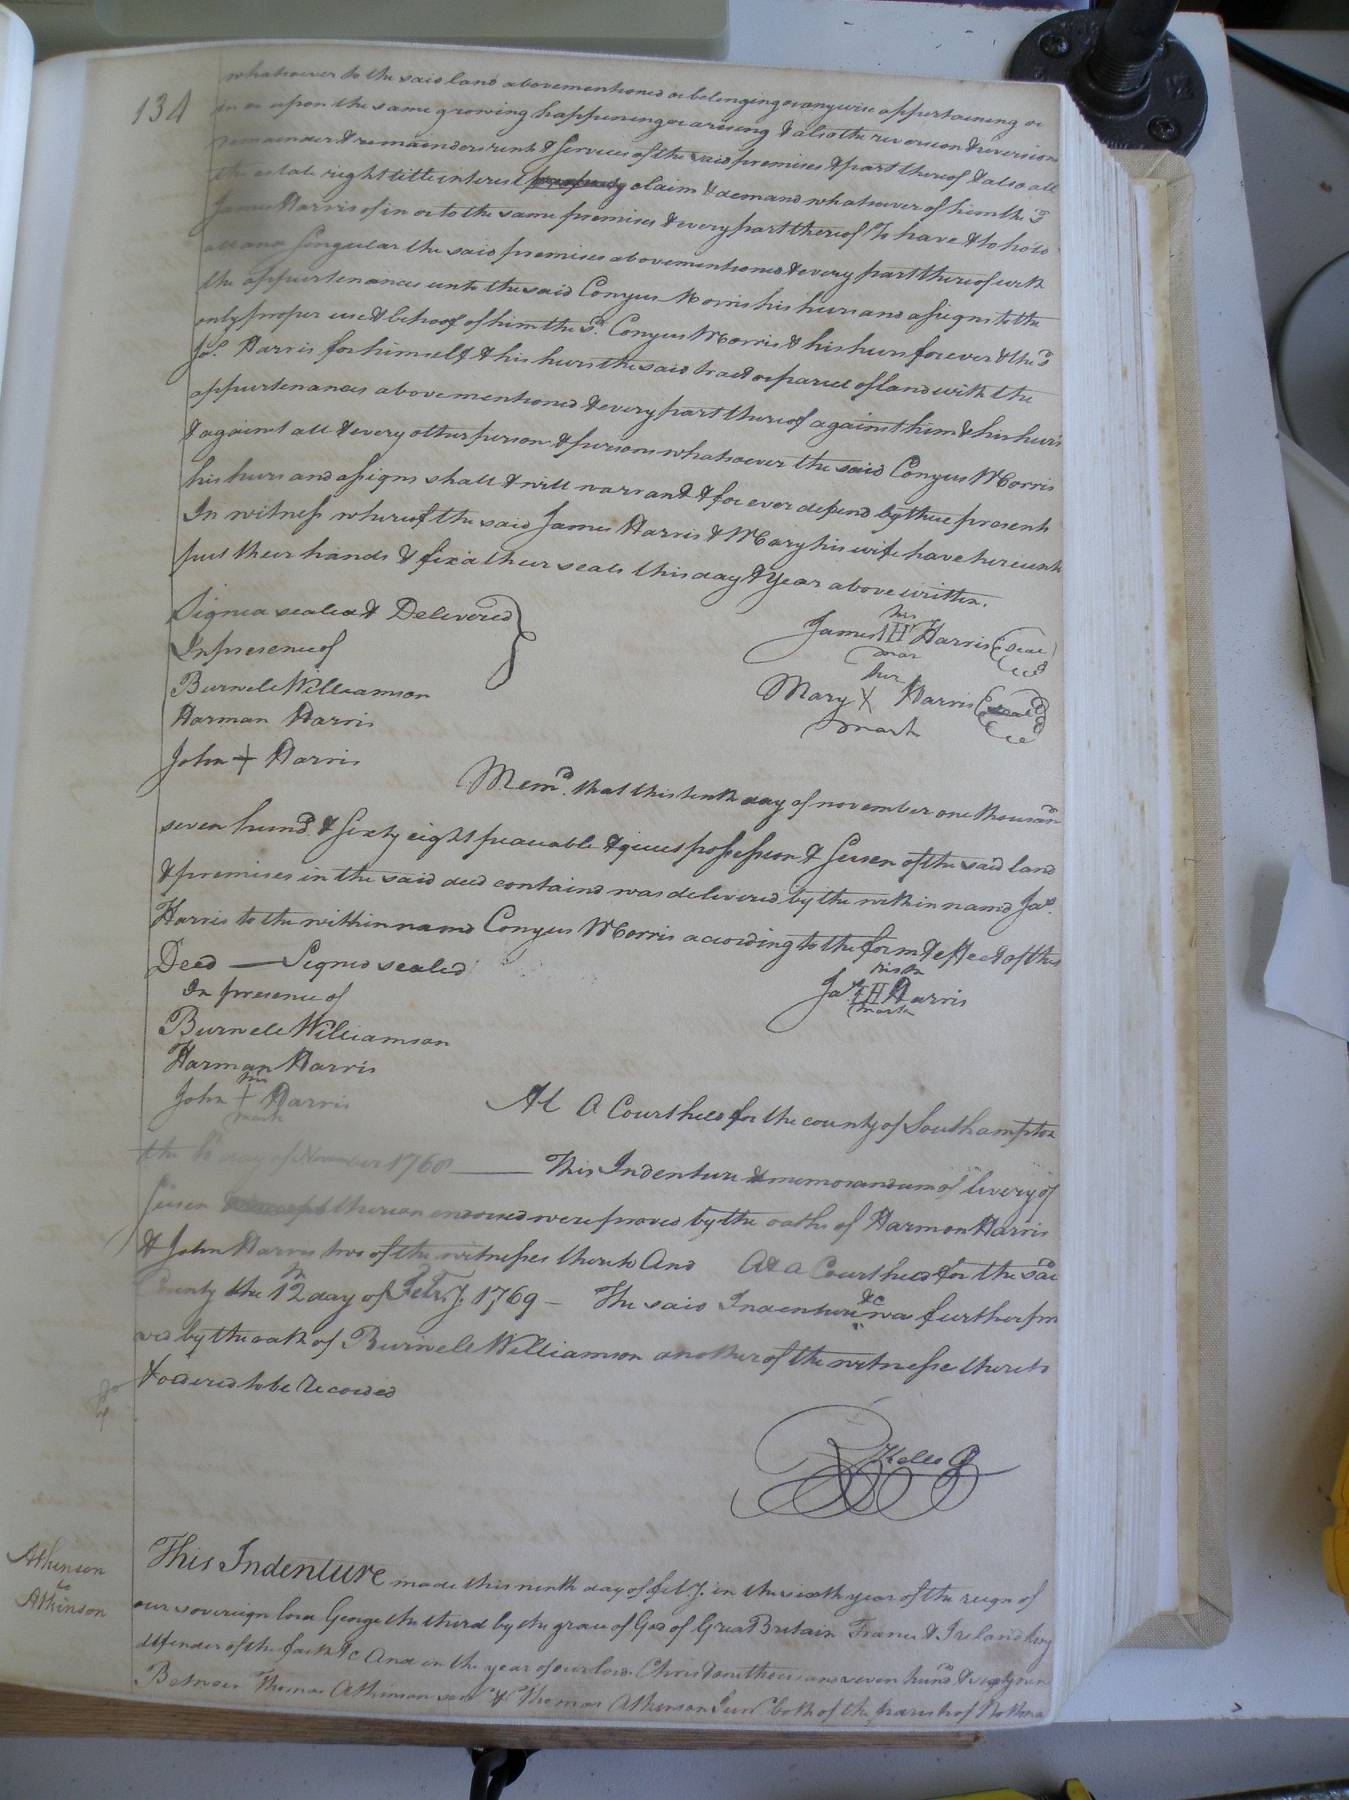 134
whatsoever to the said land abovementioned or belonging or anywise appertaining or
in or upon the same growing happening or arising & also the reversion & reversions
remainder & remainders rents & services of the said premises & part thereof & also all
the estate right title interest property claim & demand whatsoever of him the sd
James Harris of in or to the same premises & every part thereof To have & to hold
all and singular the said premises abovementioned & every part thereof with
the appurtenances unto the said Conyus Morris his heirs and assigns to the
only proper use & behoof of him the sd. Conyus Morris & his heirs for ever & the sd
Jas. Harris for himself & his heirs the said tract or parcel of land with the
appurtenances abovementioned & every part thereof against him & his heirs
& against all & every other person & persons whatsoever the said Conyus Morris
his heirs and assigns shall & will warrant & for ever defend by these presents
In witness whereof the said James Harris & Mary his wife have hereunto
put their hands & fixd their seals this day & year above written.
Signed sealed & Delivered
In presence of
Burwell Williamson
Harman Harris
John + Harris
his
James IH Harris (seal)
mar
her
Mary X Harris (seal)
mark
Memd. that this tenth day of november one thousand
seven hund. & sixty eight peaceable & quiet possession & seisen of the said land
& premises in the said deed containd was delivered by the within namd Jas.
Harris to the within namd Conyus Morris according to the form & effect of this
Deed — Signed sealed
In presence of
Burwell Williamson
Harman Harris
his
John + Harris
mark
his
Jas. IH Harris
mark
At A Court held for the county of Southampton
the day of November 1768 — This Indenture & memorandum of livery of
seisen thereon endorsed were proved by the oaths of Harmon Harris
& John Harris two of the witnesses thereto And At a Court held for the said
County the 12th day of Febry. 1769 — The said Indenture &c was further pro
ved by the oath of Burwell Williamson another of the witnesse thereto
& ordered to be recorded
R Kello C
Atkinson
to
Atkinson
This Indenture made this ninth day of feby. in the sixth year of the reign of
our sovereign lord George the third by the grace of God of Great Britain France & Ireland king
defender of the faith &c And in the year of our lord Christ one thousand seven hund & sixty nine
Between Thomas Atkinson senr & Thomas Atkinson Junr both of the parish of Nottoway